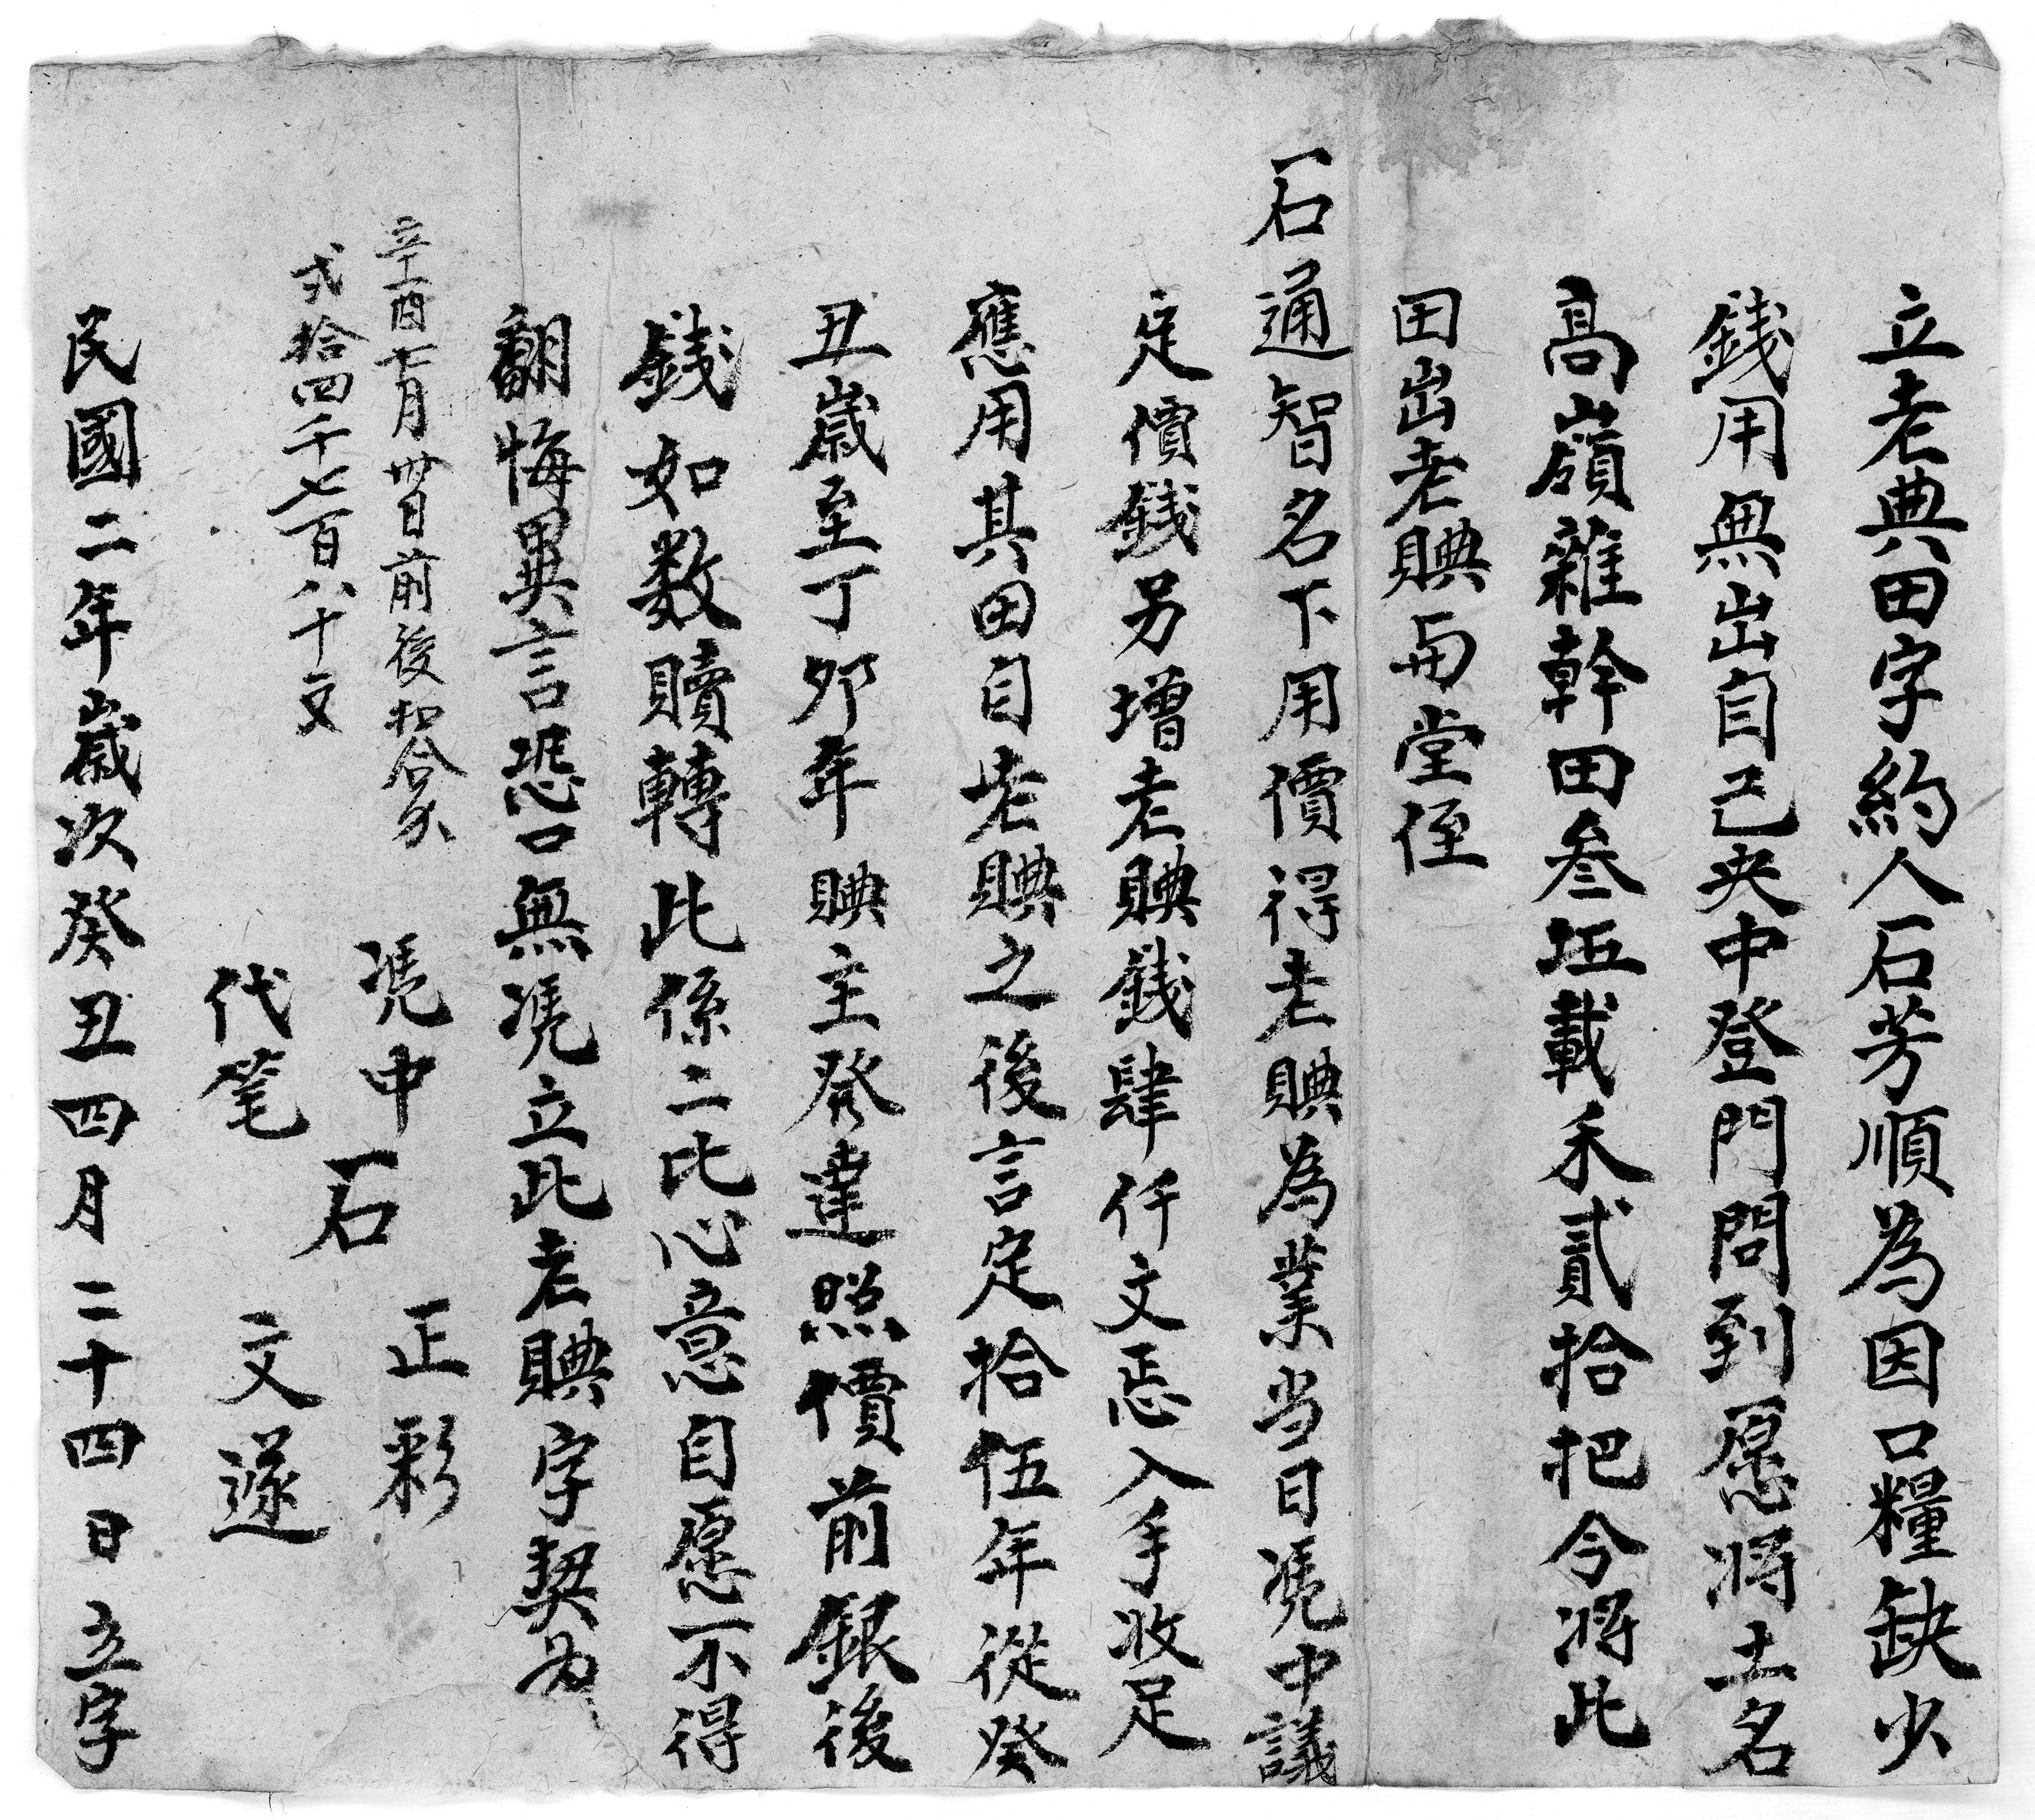 立老典田字約人石芳順為因口糧缺少
銭用無出自己央中登門問到愿将土名
高嶺雜幹田叁坵載禾貳拾把今将此
田出老賟与堂侄
石通智名下用價得老賟為業当日凴中議
定價銭另增老賟銭肆仟文恁入手收足
應用其田自老賟之後言定拾伍年從癸
丑歲至丁夘年賟主發達照價前銀後
銭如数贖轉此係二比心意自愿不得
翻悔異言恐口無凴立此老賟字契為
辛酉七月廿日前後契合共
弍拾四千七百八十文
凴中 正彩
石
代笔 文遂
民國二年歲次癸丑四月二十四日立字